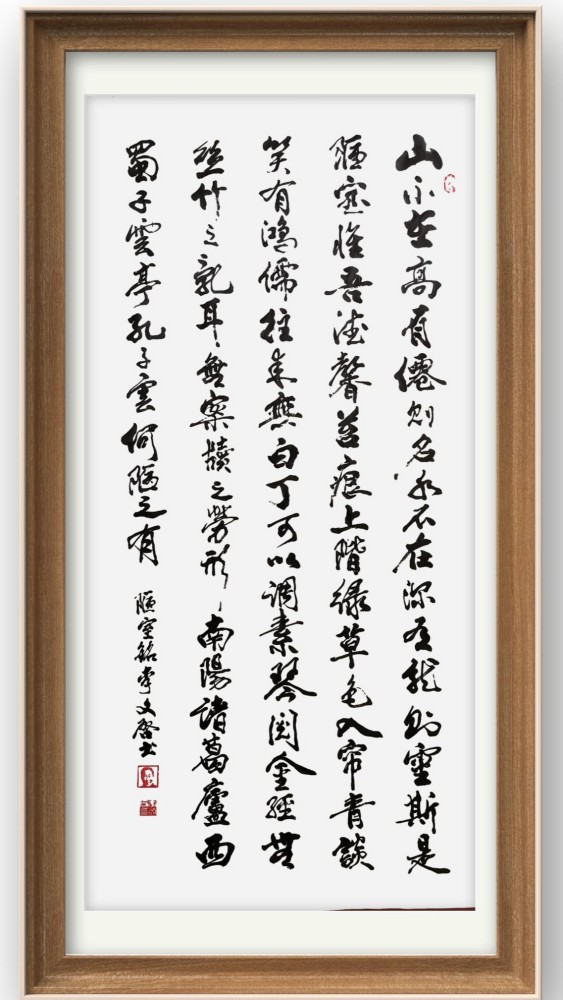 山不在高有僊则名水不在深有龍则靈斯是
陋室惟吾德馨苔痕上階緑草色入帘青談
笑有鴻儒往来無白丁可以调素琴閲金經無
絲竹之亂耳無案牘之勞形南陽諸葛廬西
蜀子雲亭孔子雲何陋之有
陋室銘李文啓书